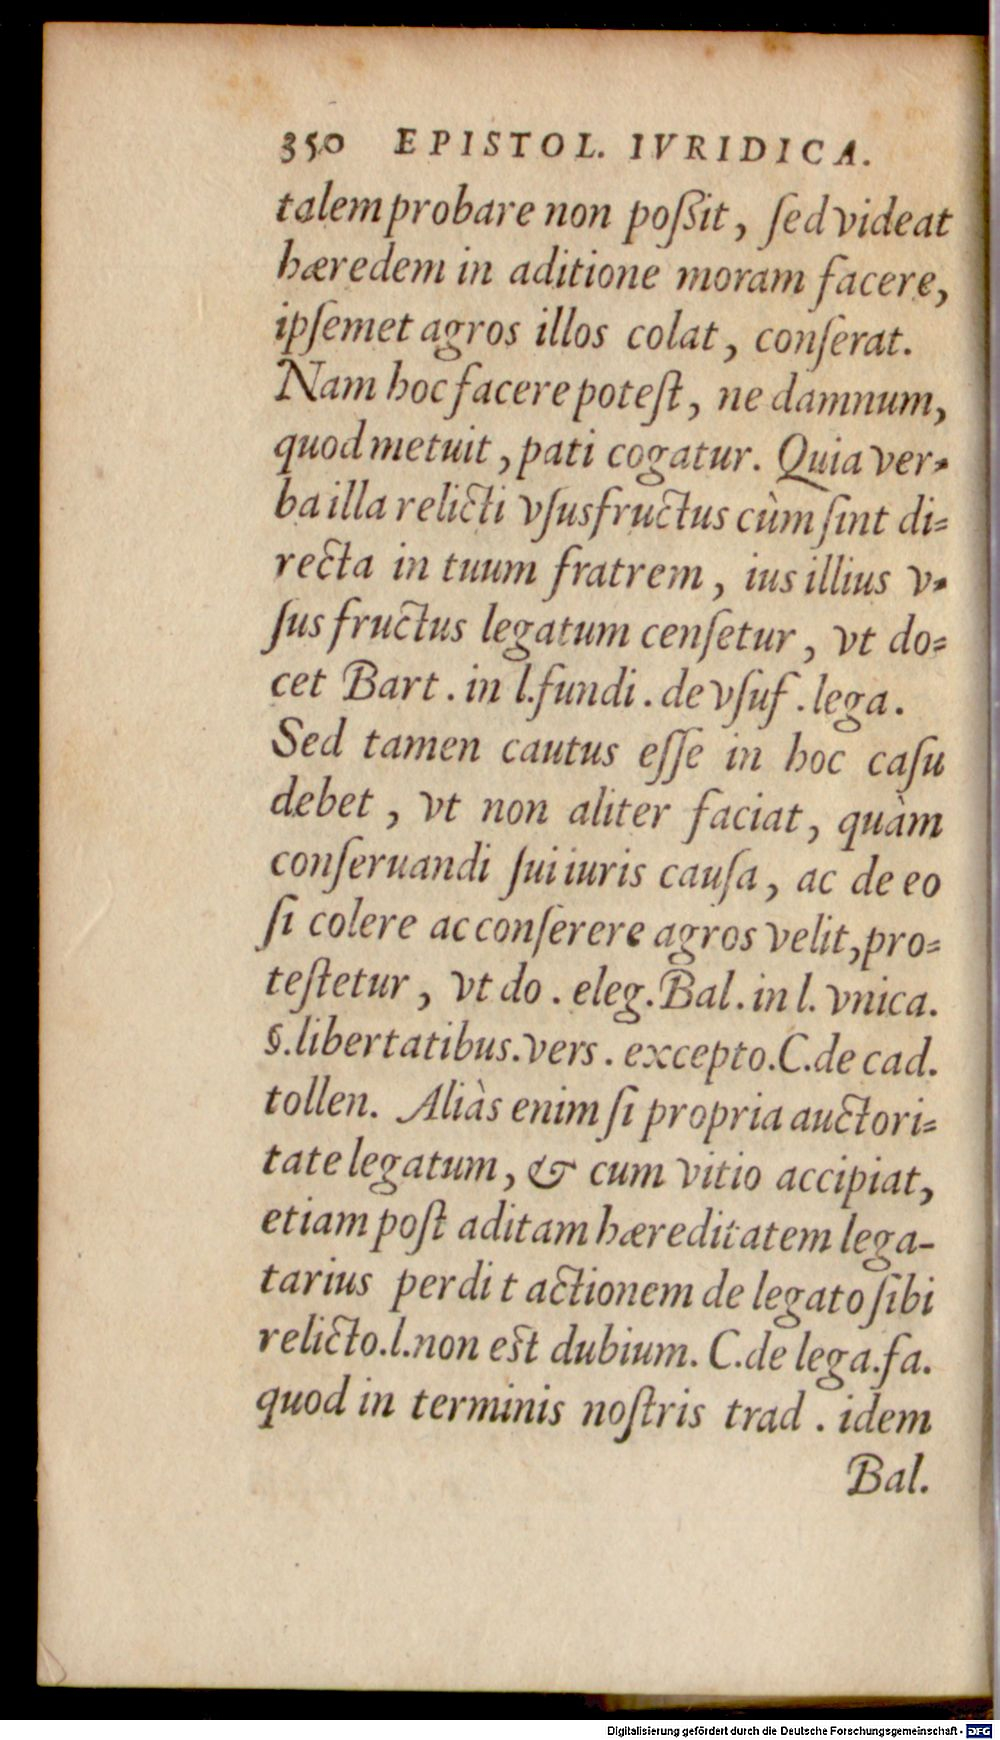 350 EPISTOL. IVRIDICA.
talem probare non poßit, ſed videat
hæredem in aditione moram facere,
ipſemet agros illos colat, conſerat.
Nam hoc facere poteſt, ne damnum,
quod metuit, pati cogatur. Quia ver-
ba illa relicti vſusfructus cùm ſint di-
recta in tuum fratrem, ius illius v-
ſus fructus legatum cenſetur, vt do-
cet Bart. in l. fundi. de vſuf. lega.
Sed tamen cautus eſſe in hoc caſu
debet, vt non aliter faciat, quàm
conſeruandi ſui iuris cauſa, ac de eo
ſi colere ac conſerere agros velit, pro-
teſtetur, vt do. eleg. Bal. in l. vnica.
§. libertatibus. vers. excepto. C. de cad.
tollen. Aliàs enim ſi propria auctori-
tate legatum, & cum vitio accipiat,
etiam poſt aditam hæreditatem lega-
tarius perdit actionem de legato ſibi
relicto. l. non est dubium. C. de lega. fa.
quod in terminis noſtris trad. idem
Bal.
Digitalisierung gefördert durch die Deutsche Forschungsgemeinschaft - DFG